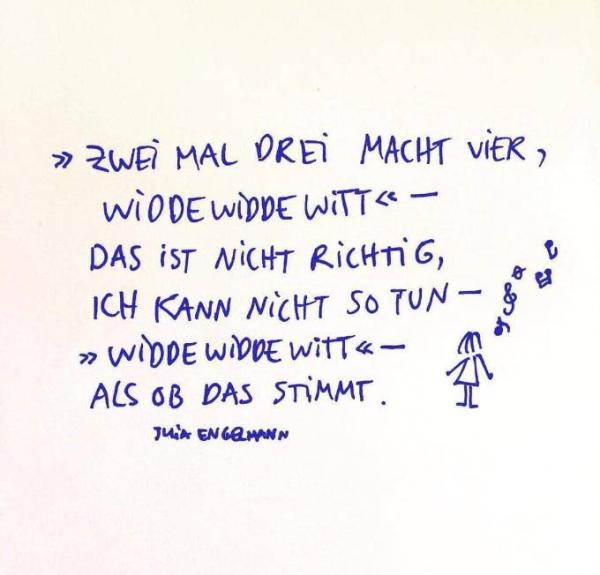 » ZWEI MAL DREI MACHT VIER,
WIDDEWIDDEWITT« –
DAS IST NICHT RICHTIG,
ICH KANN NICHT SO TUN –
» WIDDEWIDDEWITT« –
ALS OB DAS STIMMT.
JULIA ENGELMANN